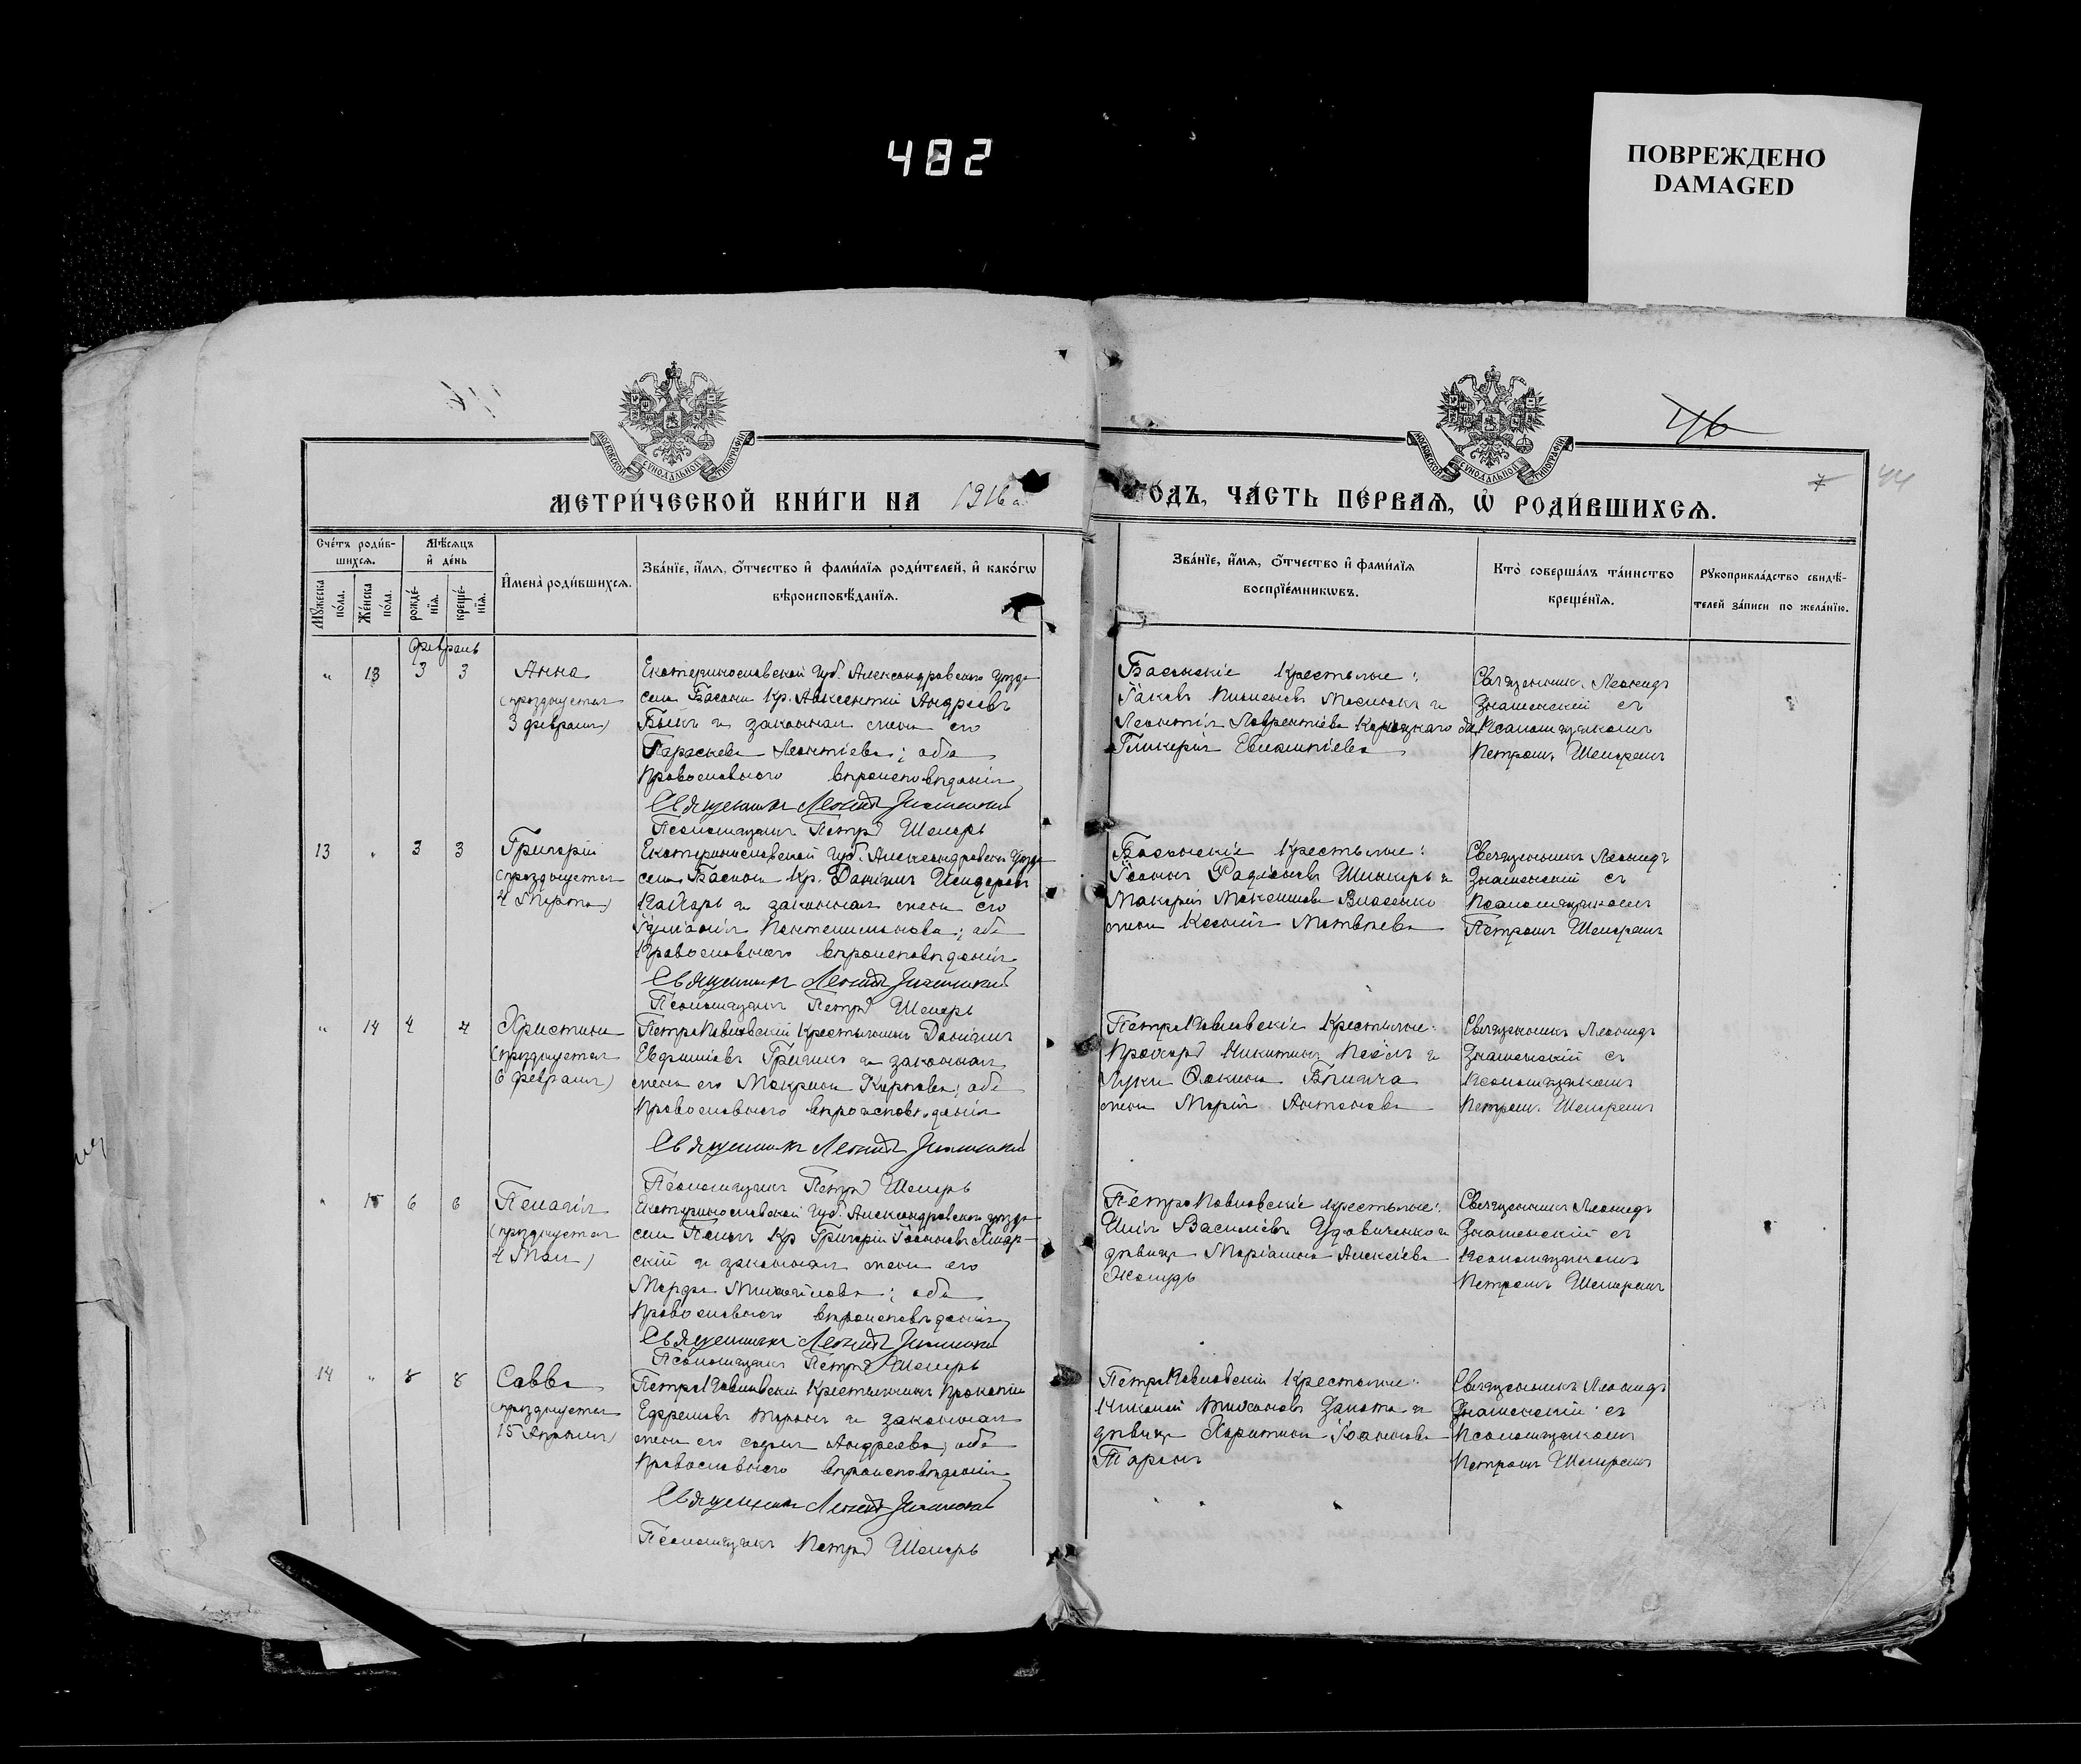 482
ПОВРЕЖДЕНО
DAMAGED
46
7 44
МОСКОВСКОЙ СУНОДАЛЬНОЙ ТИПОГРАФІИ
МОСКОВСКОЙ СУНОДАЛЬНОЙ ТИПОГРАФІИ
МЕТРИ́ЧЕСКОЙ КНИ́ГИ НА 1916
ОДЪ, ЧА́СТЬ ПЕ́РВАѦ, Ѡ҆ РОДИ́ВШИХСѦ.
Сче́тъ роди́в-
шихсѧ.
Мꙋ́жеска по́ла.
Же́нска по́ла.
Мѣ́сѧцъ
и҆ де́нь
рожде́-
нїѧ.
креще́-
нїѧ.
И҆мена̀ роди́вшихсѧ.
Зва́нїе, и҆́мѧ, ѻ҆́тчество и҆ фами́лїѧ роди́телей, и҆ како́гѡ
вѣроисповѣ́данїѧ.
Зва́нїе, и҆́мѧ, ѻ҆́тчество и҆ фами́лїѧ
воспрїе́мникѡвъ.
Кто̀ соверша́лъ та́инство
креще́нїѧ.
Рꙋкоприкла́дство свидѣ́-
телей за́писи по жела́нїю.
Февраль
" 13 3 3 Анна
(празднуется
3 февраля)
Екатеринославской Губ. Александровского уезда
села Басани Кр. Авксентій Андреевъ
и законная жена его
Параскева Леонтіева; оба
православного вѣроисповѣданія
Священникъ Леонидъ Знаменскій
Псаломщикъ Петръ Шепарь
Басанскіе крестьяне:
Іаковъ
Леонтія Лаврентіева
Гликерія Евсигніева
Священникъ Леонидъ
Знаменскій съ
Псаломщикомъ
Петромъ Шепаремъ
13 " 3 3 Григорій
(празднуется
4 Марта)
Екатеринославской Губ. Александровского уезда
села Басани Кр. Даніилъ Исидоровъ
и законная жена его
Іуліанія Пантелимонова; оба
Православного вѣроисповѣданія
Священникъ Леонидъ Знаменскій
Псаломщикъ Петръ Шепарь
Басанскіе крестьяне:
Іоаннъ Родіоновъ и
Макарія Максимова Власенко
жена Ксенія Матвѣева
Священникъ Леонидъ
Знаменскій съ
Псаломщикомъ
Петромъ Шепаремъ
" 14 4 4 Христина
(празднуется
6 февраля)
ПетроПавловскій Крестьянинъ Даніилъ
Евфиміевъ и законная
жена его Макрина Карпова; оба
православного вѣроисповѣданія
Священникъ Леонидъ Знаменскій
Псаломщикъ Петръ Шепарь
ПетроПавловскіе крестьяне:
Прохоръ Никитинъ и
Луки Фокина
жена Марія Антонова
Священникъ Леонидъ
Знаменскій съ
Псаломщикомъ
Петромъ Шепаремъ
" 15 6 6 Пелагія
(празднуется
4 Мая)
Екатеринославской Губ. Александровского уезда
села Кр Григорій Іоанновъ
скій и законная жена его
Марфа Михайлова; оба
православного вѣроисповѣданія
Священникъ Леонидъ Знаменскій
Псаломщикъ Петръ Шепарь
ПетроПавловскіе крестьяне:
Илія Василіевъ Удовиченко и
дѣвица Маріанна Алексіева
Священникъ Леонидъ
Знаменскій съ
Псаломщикомъ
Петромъ Шепаремъ
14 " 8 8 Савва
(празднуется
15 Апрѣля)
ПетроПавловскій Крестьянинъ Прокопій
Ефремовъ Таранъ и законная
жена его Софія Андреева; оба
Православного вѣроисповѣданія
Священникъ Леонидъ Знаменскій
Псаломщикъ Петръ Шепарь
ПетроПавловскіи Крестьяне:
Николай и
дѣвица Харитина Іоаннова
Таранъ
Священникъ Леонидъ
Знаменскій съ
Псаломщикомъ
Петромъ Шепаремъ